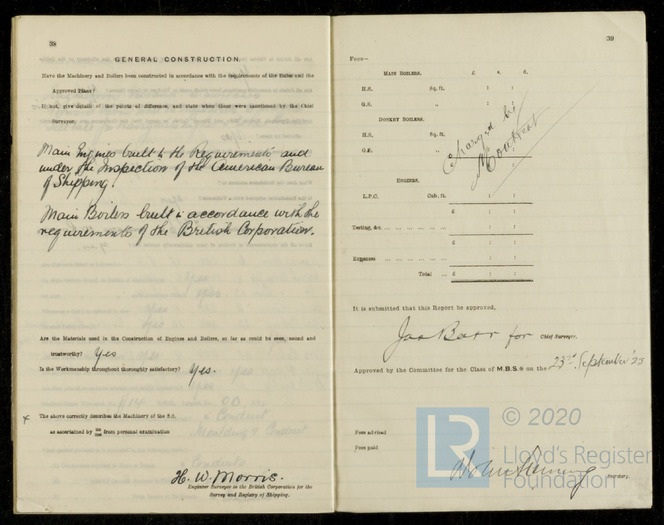 38
GENERAL CONSTRUCTION.
Have the Machinery and Boilers been constructed in accordance with the requirements of the Rules and the
Approved Plans?
If not, give details of the points of difference, and state when these were sanctioned by the Chief
Surveyor.
Main Engines built to the Requirements and
under the Inspection of the American Bureau
of Shipping.
Main Boilers built in accordance with the
requirements of the British Corporation.
Are the Materials used in the Construction of Engines and Boilers, so far as could be seen, sound and
trustworthy? Yes
Is the Workmanship throughout thoroughly satisfactory? Yes.
The above correctly describes the Machinery of the S.S.
as ascertained by from personal examination
H. W. Morris.
Engineer Surveyor to the British Corporation for the
Survey and Registry of Shipping.
39
Fees—
MAIN BOILERS. £ s. d.
H.S. Sq. ft. : :
G.S. „ : :
DONKEY BOILERS.
H.S. Sq. ft. : :
G.S. „ : :
Charged by
ENGINES.
L.P.C. Cub. ft. : :
£ : :
Testing, &c. : :
£ : :
Expenses : :
Total £ : :
It is submitted that this Report be approved,
Jas Barr for Chief Surveyor.
Approved by the Committee for the Class of M.B.S* on the 23rd September '25
Fees advised
Fees paid
Secretary.
© 2020
LR
Lloyd's Register
Foundation